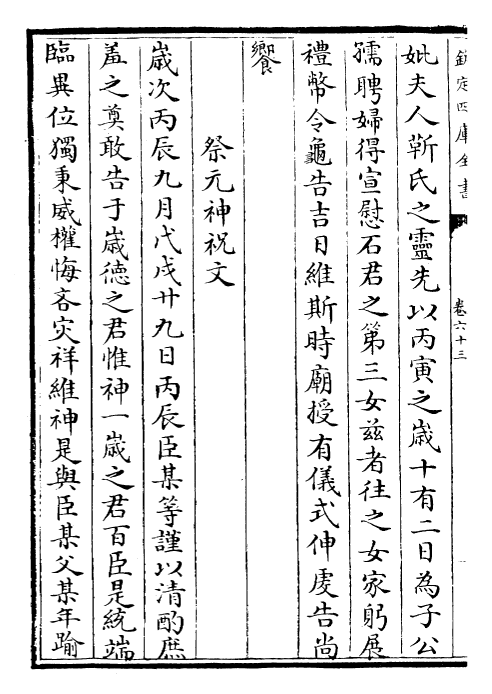 欽定四庫全書
卷六十三
妣夫人靳氏之靈先以丙寅之歳十有二日為子公
孺聘婦得宣慰石君之第三女兹者往之女家躬展
禮幣令龜告吉日維斯時廟授有儀式伸䖍告尚
饗
祭元神祝文
歳次丙辰九月戊戌廿九日丙辰臣某等謹以清酌庶
羞之奠敢告于歳德之君惟神一歳之君百臣是統端
臨異位獨秉威權悔吝災祥維神是與臣某父某年踰